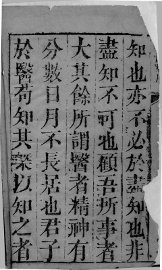 知也亦不必於盡知也非
盡知不可也顧吾所事者
大其餘所謂醫者精神有
分數日月不長居也君子
於醫苟知其槩以知之者